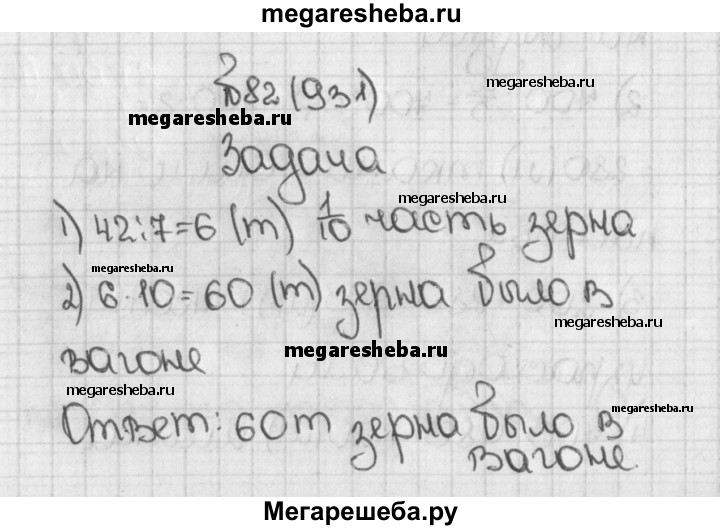 megaresheba.ru
№82 (931)
megaresheba.ru
megaresheba.ru
Задача
megaresheba.ru
1) 42:7=6 (т) 1/10 часть зерна
megaresheba.ru
2) 6·10=60 (т) зерна было в
megaresheba.ru
вагоне
megaresheba.ru
megaresheba.ru
Ответ: 60т зерна было в
megaresheba.ru
вагоне.
Мегарешеба.ру